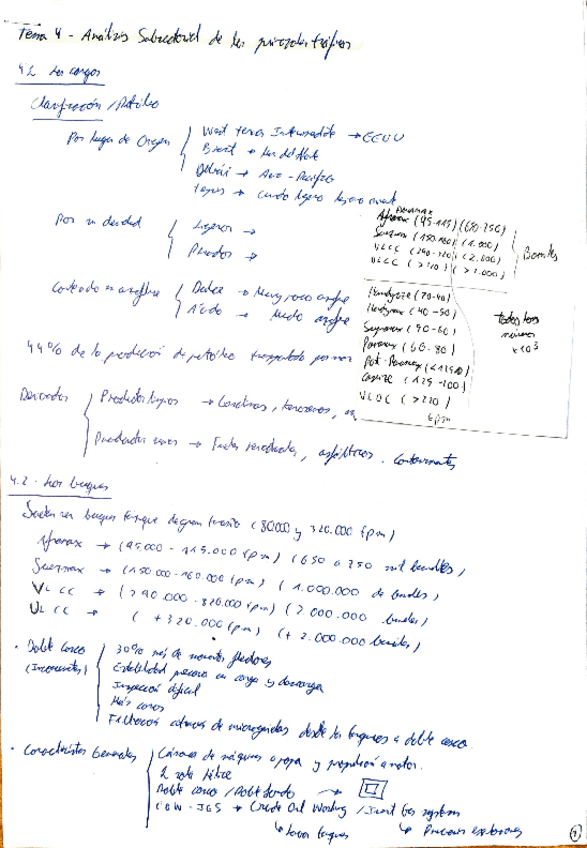 Tema 4 - Análisis Subsectorial de los principales tráficos
4.1 Las cargas
Clasificación / Petróleo
Por lugar de Origen
West Texas Intermediate → EEUU
Brent → Mar del Norte
Dubái → Asia - Pacífico
→ Crudo ligero
Por su densidad
Ligeros →
Pesados →
Contenido en azufre
Dulce → Muy poco azufre
Ácido → Mucho azufre
44% de la producción de petróleo transportado por mar
Derivados
Productos ligeros → Gasolinas, kerosenos,
Productos sucios → Fueles residuales, asfálticos. Contaminantes
Panamax
Aframax (95-115) (650-750)
Suezmax (150-160) (1.000)
VLCC (290-320) (2.000)
ULCC (>320) (>2.000)
Barriles
Handysize (20-40)
Handymax (40-50)
Supramax (50-60)
Panamax (60-80)
Post-Panamax (<125)
Capesize (125-200)
VLOC (>220)
tpm
todos los
números
x10³
4.2 - Los buques
Suelen ser buques tanque de gran tamaño (80.000 y 320.000 tpm)
Aframax → (95.000 - 115.000 tpm) (650 a 750 mil barriles)
Suezmax → (150.000 - 160.000 tpm) (1.000.000 de barriles)
VLCC → (290.000 - 320.000 tpm) (2.000.000 barriles)
ULCC → (+320.000 tpm) (+2.000.000 barriles)
• Doble casco
(Inconvenientes)
30% más de momentos flectores
Estabilidad precaria en carga y descarga
Inspección difícil
Más caros
Filtración a través de microgrietas desde los tanques a doble casco.
• Características Generales
Cámara de máquinas a popa y propulsión a motor.
1 sola hélice
Doble casco / Doble fondo →
COW - IGS → Crude Oil Washing / Inert Gas System
↳ Lavar tanques
↳ Prevenir explosiones